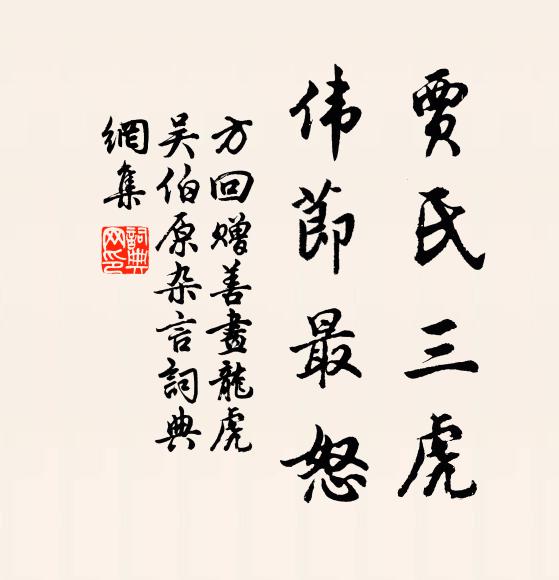 贾氏三虎
伟节最怒
方回赠善画龙虎
吴伯原杂言词典
网集
词典网印